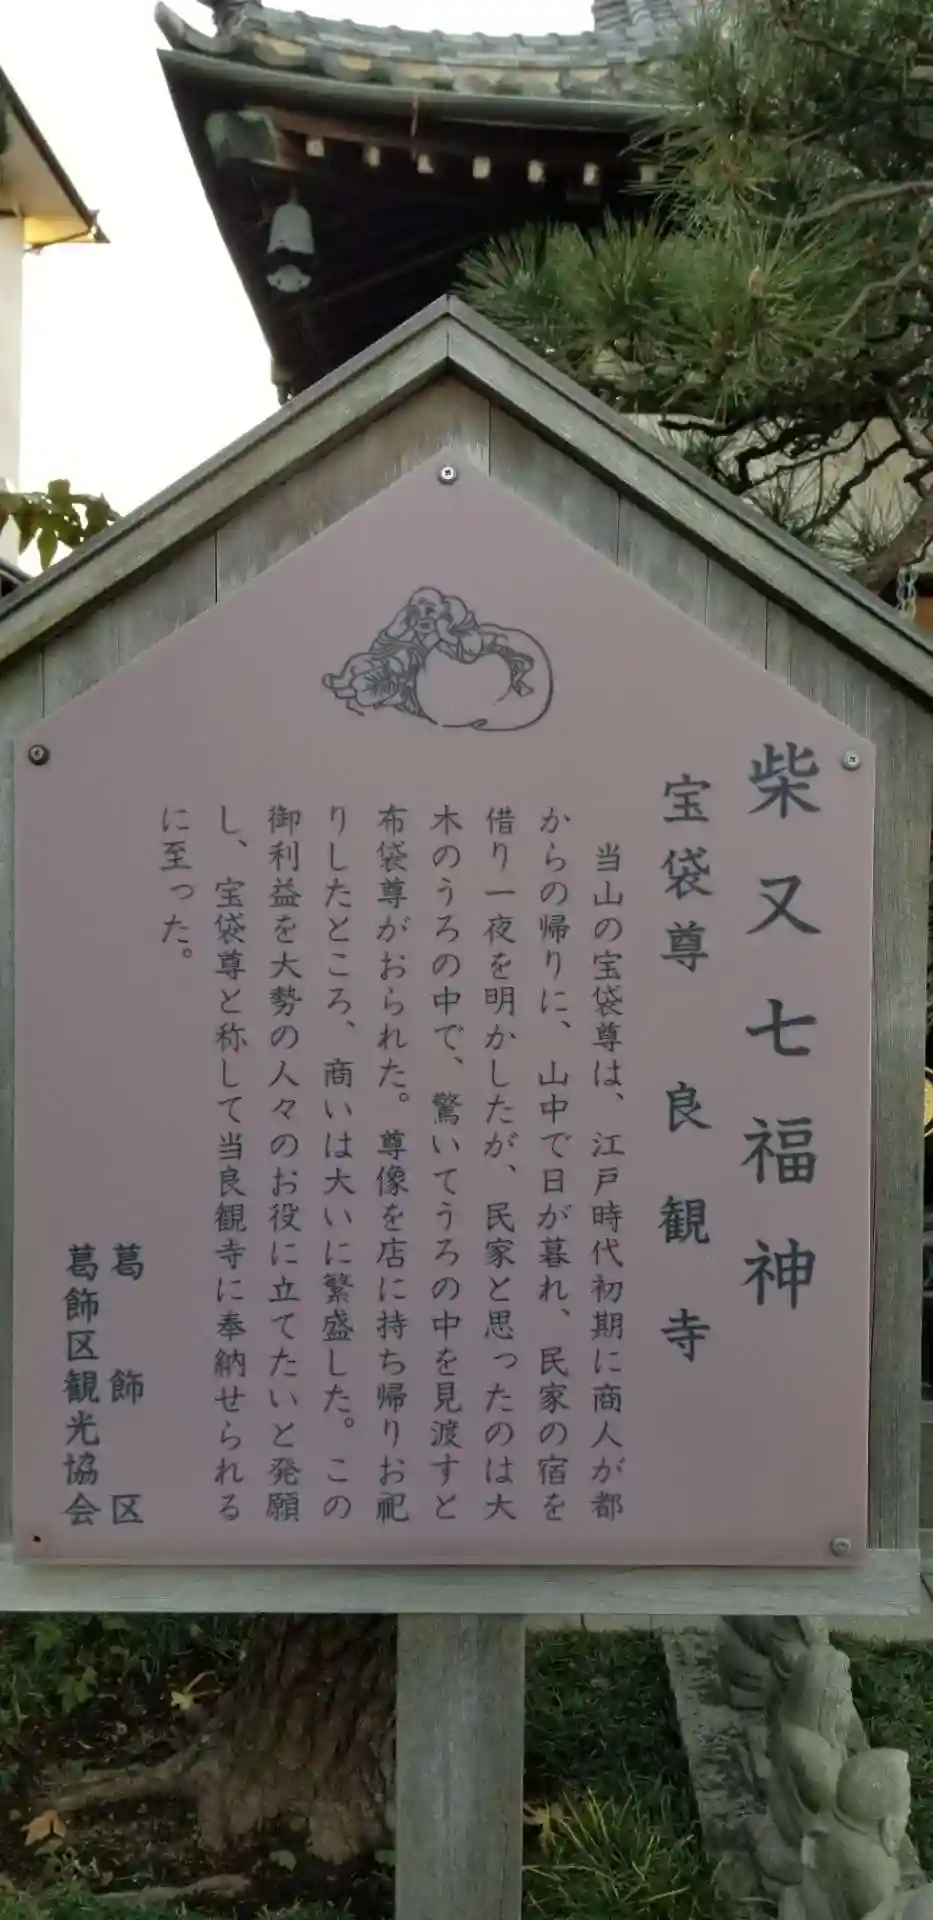 柴又七福神
宝袋尊 良観寺
当山の宝袋尊は、江戸時代初期に商人が都
からの帰りに、山中で日が暮れ、民家の宿を
借り一夜を明かしたが、民家と思ったのは大
木のうろの中で、驚いてうろの中を見渡すと
布袋尊がおられた。尊像を店に持ち帰りお祀
りしたところ、商いは大いに繁盛した。この
御利益を大勢の人々のお役に立てたいと発願
し、宝袋尊と称して当良観寺に奉納せられる
に至った。
葛飾区
葛飾区観光協会